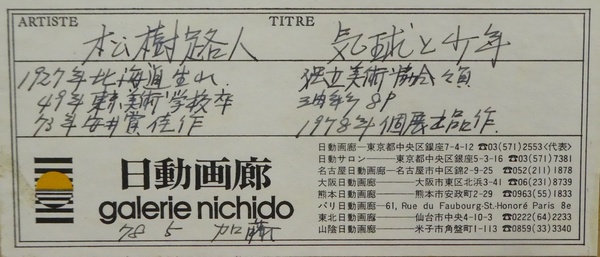 ARTISTE TITRE
松樹路人 気球と少年
1927年北海道生れ. 独立美術協会々員
49年東京美術学校卒 油彩 8P
73年安井賞佳作 1978年個展出品作.
日動画廊
galerie nichido
78 5 加藤
日動画廊―東京都中央区銀座7-4-12 ☎03(571)2553<代表>
日動サロン―東京都中央区銀座5-3-16 ☎03(571)7381
名古屋日動画廊―名古屋市中区錦2-9-25 ☎052(211)1878
大阪日動画廊―大阪市東区北浜3-41 ☎06(231)8739
熊本日動画廊―熊本市安政町2-29 ☎0963(55)1833
パリ日動画廊―61, Rue du Faubourg-St.-Honoré Paris 8e
東北日動画廊―仙台市中央4-10-3 ☎0222(64)2233
山陰日動画廊―米子市角盤町1-113 ☎0859(33)3340